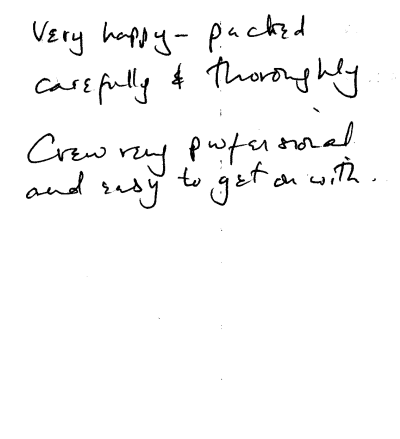 Very happy - packed
carefully & thoroughly
Crew very professional
and easy to get on with.